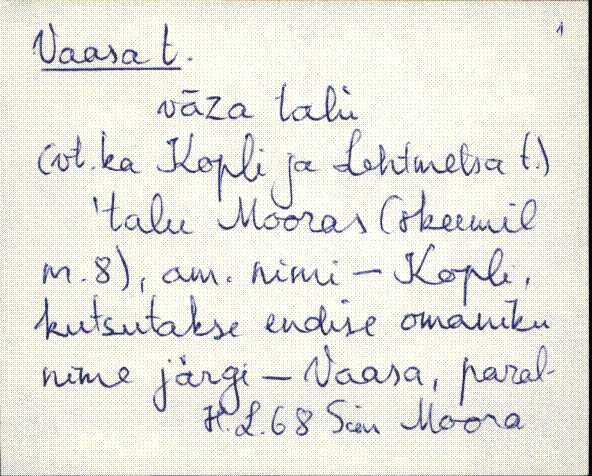 1
Vaasa t.
vāza talù
(vt. ka Kopli ja Lehtmetsa t.)
'talu Mooras (skeemil
n. 8), am. nimi – Kopli,
kutsutakse endise omaniku
nime järgi – Vaasa, paral-
H. L. 68 Sim Moora